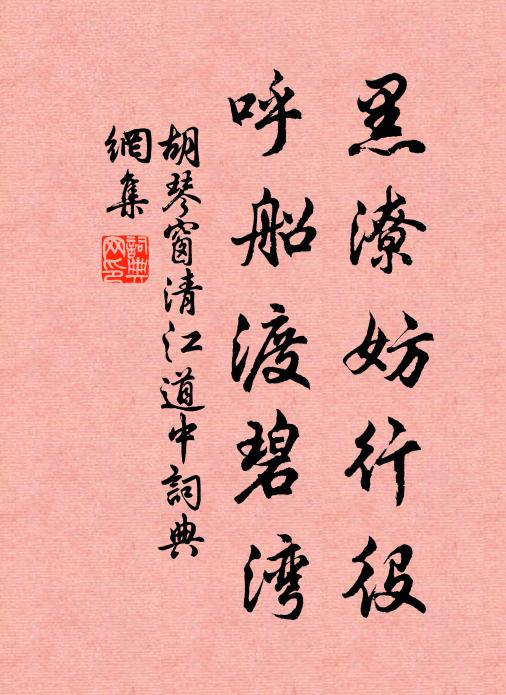 黑潦妨行役
呼船渡碧湾
胡琴窗清江道中詞典
網集
詞典网印